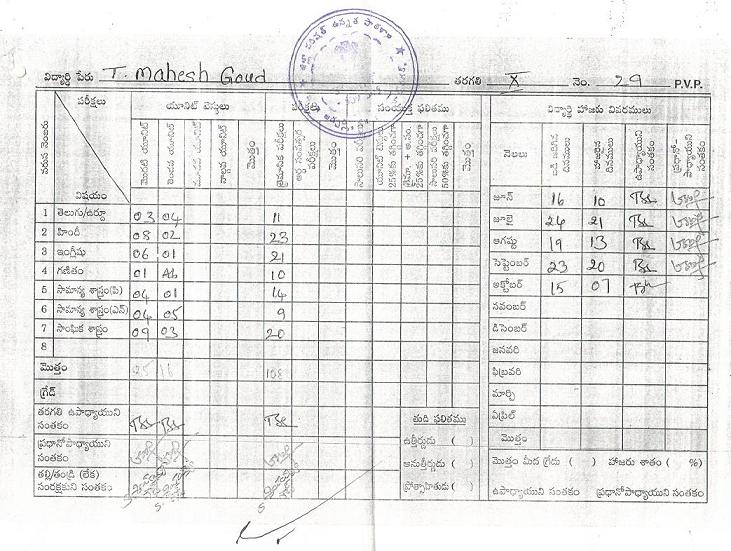 విద్యార్థి పేరు T. Mahesh Goud తరగతి X నెం. 29 P.V.P.
వరుస నెంబరు పరీక్షలు యూనిట్ టెస్టులు పరీక్ష సంయుక్త ఫలితము
విషయం మొదటి యూనిట్ రెండవ యూనిట్ మూడవ యూనిట్ నాల్గవ యూనిట్ మొత్తం త్రైమాసిక పరీక్షలు అర్థ సంవత్సర పరీక్షలు మొత్తం మొత్తం
1 తెలుగు/ఉర్దూ 03 04 11
2 హిందీ 08 02 23
3 ఇంగ్లీషు 06 01 21
4 గణితం 01 Ab 10
5 సామాన్య శాస్త్రం(పి) 04 01 14
6 సామాన్య శాస్త్రం(ఎన్) 04 05 9
7 సాంఘిక శాస్త్రం 09 03 20
8
మొత్తం 25 16 108
గ్రేడ్
తరగతి ఉపాధ్యాయుని సంతకం
ప్రధానోపాధ్యాయుని సంతకం
తల్లి/తండ్రి (లేక) సంరక్షకుని సంతకం
తుది ఫలితము
ఉత్తీర్ణుడు ( )
అనుత్తీర్ణుడు ( )
ప్రోత్సాహితుడు ( )
విద్యార్థి హాజరు వివరములు
నెలలు బడి జరిగిన దినములు హాజరైన దినములు ఉపాధ్యాయుని సంతకం
జూన్ 16 10
జూలై 24 21
ఆగష్టు 19 13
సెప్టెంబర్ 23 20
అక్టోబర్ 15 07
నవంబర్
డిసెంబర్
జనవరి
ఫిబ్రవరి
మార్చి
ఏప్రిల్
మొత్తం
మొత్తం మీద గ్రేడు ( ) హాజరు శాతం ( %)
ఉపాధ్యాయుని సంతకం ప్రధానోపాధ్యాయుని సంతకం